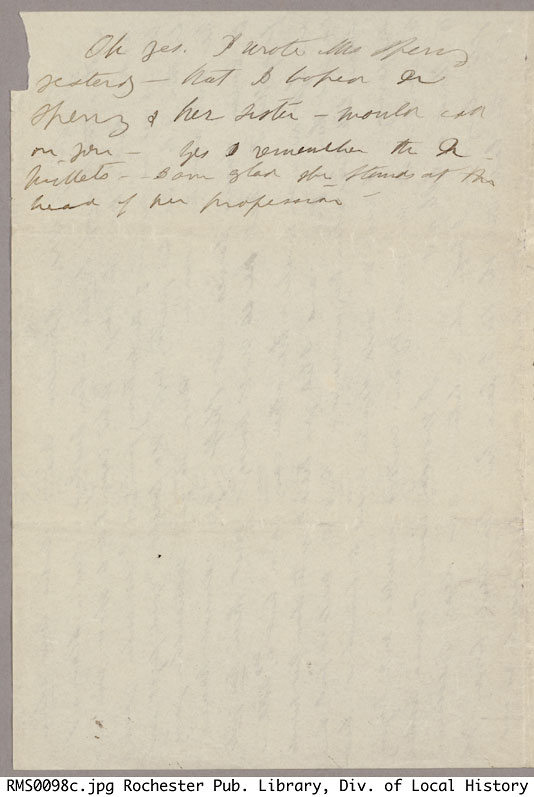 Oh yes. I wrote Mrs Sperry
yesterdy — that I hoped Dr
Sperry & her sister — would call
on you — yes I remember the Dr
— I am glad she stands at the
head of her profession —
RMS0098c.jpg Rochester Pub. Library, Div. of Local History